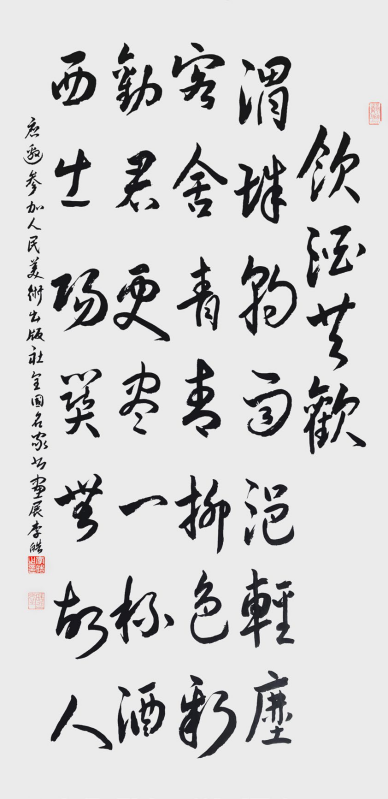 飲酒共歡
渭城朝雨浥輕塵
客舍青青柳色新
勸君更盡一杯酒
西出陽關無故人
应邀參加人民美術出版社全國名家书畫展李皓